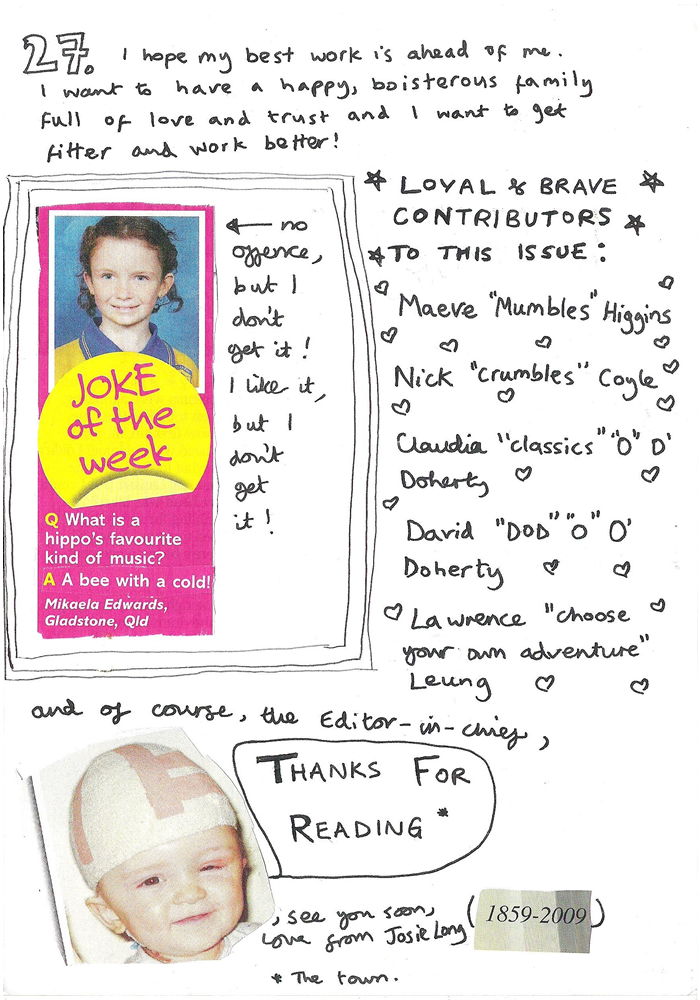 27. I hope my best work is ahead of me.
I want to have a happy, boisterous family
full of love and trust and I want to get
fitter and work better!
JOKE
of the
week
Q What is a
hippo's favourite
kind of music?
A A bee with a cold!
Mikaela Edwards,
Gladstone, Qld
← no
offence,
but I
don't
get it!
I like it,
but I
don't
get
it!
★ LOYAL & BRAVE ★
CONTRIBUTORS ★
★ TO THIS ISSUE:
Maeve "Mumbles" Higgins
Nick "Crumbles" Coyle
Claudia "classics" "O" O'
Doherty
David "DOD" "O" O'
Doherty
Lawrence "choose
your own adventure"
Leung
and of course, the Editor-in-chief,
THANKS FOR
READING *
, see you soon,
Love from Josie Long
(1859-2009)
* The town.